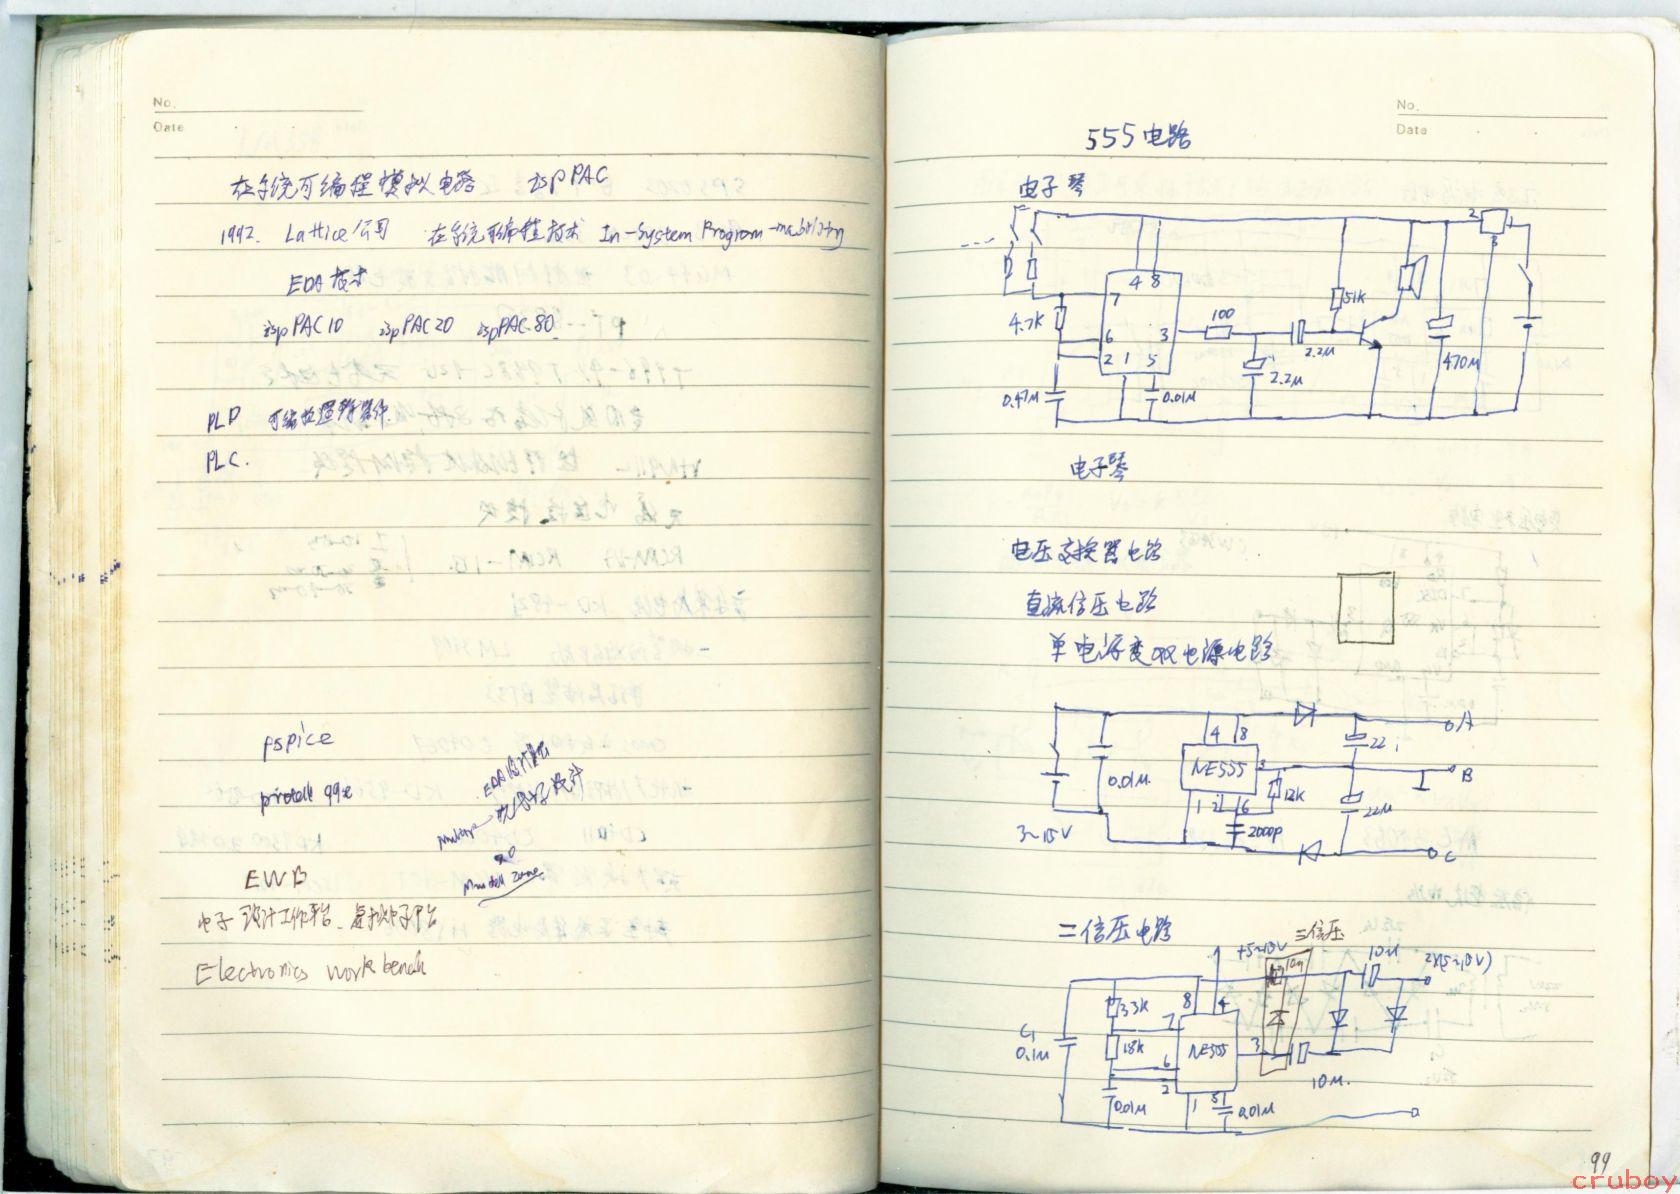 No.
Date
在系统可编程模拟电路 ispPAC
1992. Lattice公司 在系统可编程技术 In-System Program-mability
EDA技术
ispPAC10 ispPAC20 ispPAC80
PLD 可编程逻辑器件.
PLC.
pspice
protell 99se
EDA
设计
EWB
电子设计工作平台. 虚拟电子平台
Electronics workbench
No.
Date
555电路
电子琴
2 1
3
4 8
7
4.7K
6 3
2 1 5
100
51K
2.2μ
2.2μ
470μ
0.47μ
0.01μ
电子琴
电压变换器电路
直流倍压电路
单电源变双电源电路
A
4 8
22μ
NE555 3
B
0.01μ
12K
1 2 6
22μ
3~15V
2000P
C
二倍压电路
+5~10V 三倍压
10μ 10μ 2X(5~10V)
8 4
33K
7
C1
0.1μ
18K
NE555 3
6
2
10μ.
0.01μ
1 5
0.01μ
99
cruboy